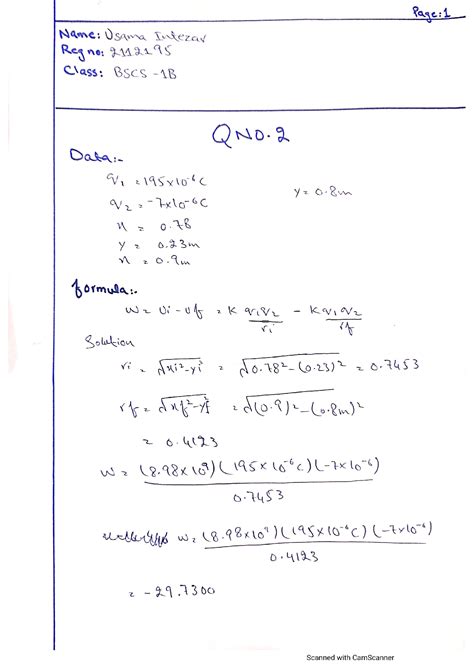 Page:1
Name: Usama Intezar
Reg no: 2112195
Class: BSCS -1B
QNO.2
Data:-
q1 = 195x10^-6 C
q2 = -7x10^-6 C
y = 0.8m
x = 0.78
y = 0.23m
x = 0.9m
formula:-
W = Ui - Uf = K q1q2/ri - K q1q2/rf
Solution
ri = √xi²-yi² = √0.78²-(0.23)² = 0.7453
rf = √xf²-yf² = √(0.9)²-(0.8m)²
= 0.4123
W = (8.98x10^9)(195x10^-6 C)(-7x10^-6)/0.7453
W = (8.98x10^9)(195x10^-6 C)(-7x10^-6)/0.4123
= -29.7300
Scanned with CamScanner